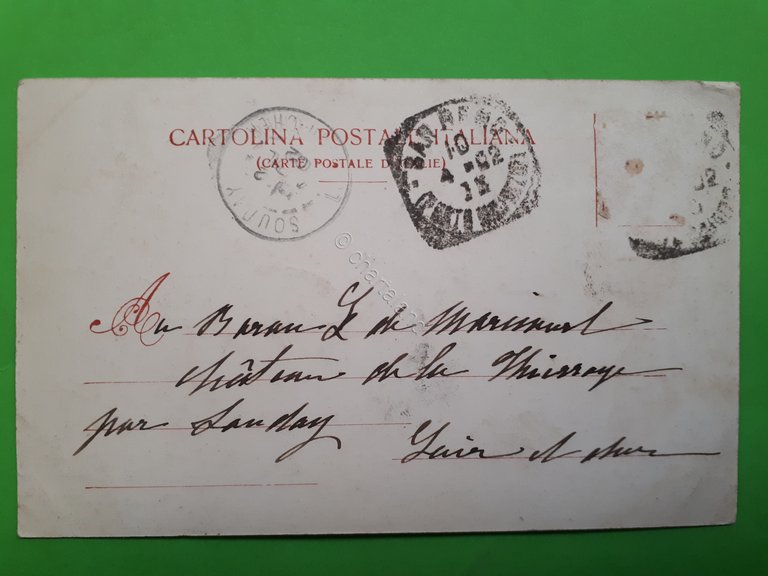 CARTOLINA POSTALE ITALIANA
(CARTE POSTALE D'ITALIE)
SOUDAY
SAN REMO
10
4 - 02
1 S
Au Baron L de Maricourt
château de la Thierraye
par Souday
Loir et cher
© charta